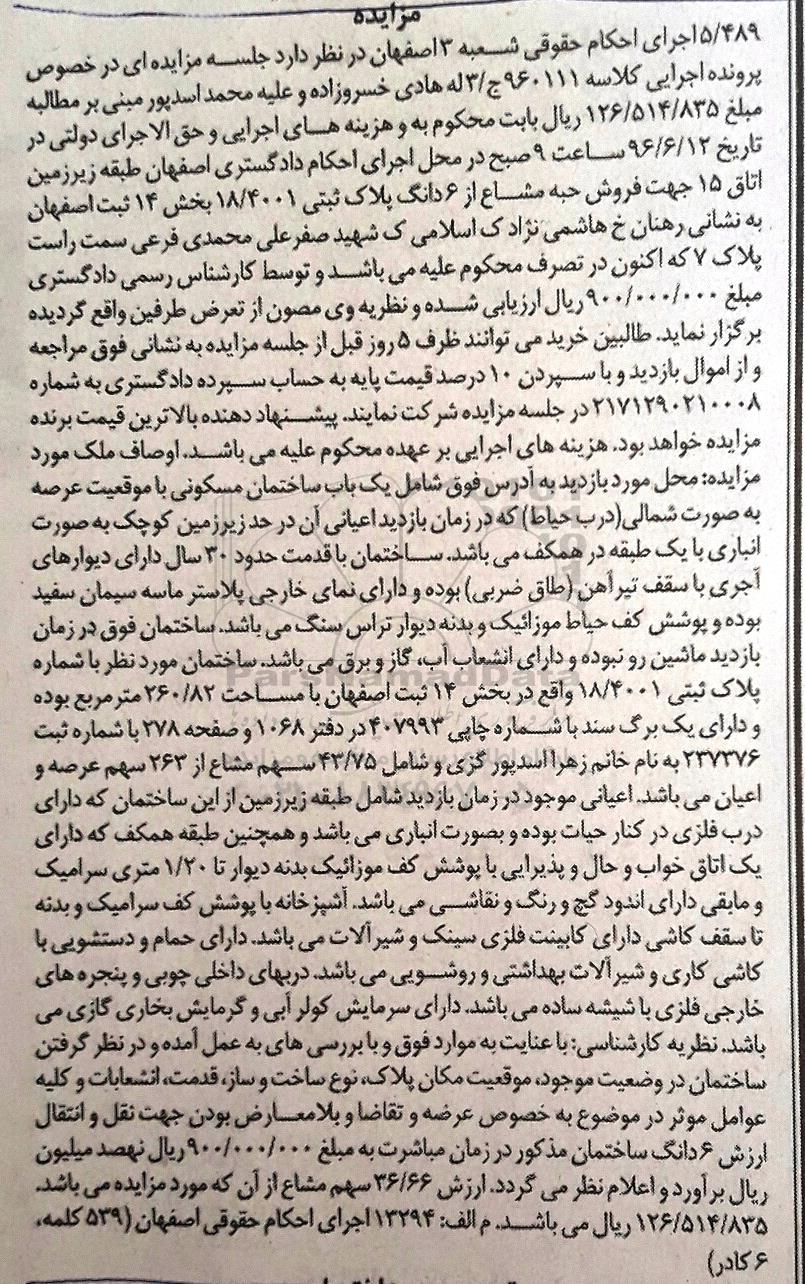 مزایده
۵/۴۸۹ اجرای احکام حقوقی شعبه ۳ اصفهان در نظر دارد جلسه مزایده ای در خصوص
پرونده اجرایی کلاسه ۹۶۰۱۱۱ج/۳ له هادی خسروزاده و علیه محمد اسدپور مبنی بر مطالبه
مبلغ ۱۲۶/۵۱۴/۸۳۵ ریال بابت محکوم به و هزینه های اجرایی و حق الاجرای دولتی در
تاریخ ۹۶/۶/۱۲ ساعت ۹ صبح در محل اجرای احکام دادگستری اصفهان طبقه زیرزمین
اتاق ۱۵ جهت فروش حبه مشاع از ۶ دانگ پلاک ثبتی ۱۸/۴۰۰۱ بخش ۱۴ ثبت اصفهان
به نشانی رهنان خ هاشمی نژاد ک اسلامی ک شهید صفرعلی محمدی فرعی سمت راست
پلاک ۷ که اکنون در تصرف محکوم علیه می باشد و توسط کارشناس رسمی دادگستری
مبلغ ۹۰۰/۰۰۰/۰۰۰ ریال ارزیابی شده و نظریه وی مصون از تعرض طرفین واقع گردیده
برگزار نماید. طالبین خرید می توانند ظرف ۵ روز قبل از جلسه مزایده به نشانی فوق مراجعه
و از اموال بازدید و با سپردن ۱۰ درصد قیمت پایه به حساب سپرده دادگستری به شماره
۲۱۷۱۲۹۰۲۱۰۰۰۸ در جلسه مزایده شرکت نمایند. پیشنهاد دهنده بالاترین قیمت برنده
مزایده خواهد بود. هزینه های اجرایی بر عهده محکوم علیه می باشد. اوصاف ملک مورد
مزایده: محل مورد بازدید به آدرس فوق شامل یک باب ساختمان مسکونی با موقعیت عرصه
به صورت شمالی(درب حیاط) که در زمان بازدید اعیانی آن در حد زیرزمین کوچک به صورت
انباری با یک طبقه در همکف می باشد. ساختمان با قدمت حدود ۳۰ سال دارای دیوارهای
آجری با سقف تیرآهن (طاق ضربی) بوده و دارای نمای خارجی پلاستر ماسه سیمان سفید
بوده و پوشش کف حیاط موزائیک و بدنه دیوار تراس سنگ می باشد. ساختمان فوق در زمان
بازدید ماشین رو نبوده و دارای انشعاب آب، گاز و برق می باشد. ساختمان مورد نظر با شماره
پلاک ثبتی ۱۸/۴۰۰۱ واقع در بخش ۱۴ ثبت اصفهان با مساحت ۲۶۰/۸۲ متر مربع بوده
و دارای یک برگ سند با شماره چاپی ۴۰۷۹۹۳ در دفتر ۱۰۶۸ و صفحه ۲۷۸ با شماره ثبت
۲۳۷۳۷۶ به نام خانم زهرا اسدپور گزی و شامل ۴۳/۷۵ سهم مشاع از ۲۶۳ سهم عرصه و
اعیان می باشد. اعیانی موجود در زمان بازدید شامل طبقه زیرزمین از این ساختمان که دارای
درب فلزی در کنار حیات بوده و بصورت انباری می باشد و همچنین طبقه همکف که دارای
یک اتاق خواب و حال و پذیرایی با پوشش کف موزائیک بدنه دیوار تا ۱/۲۰ متری سرامیک
و مابقی دارای اندود گچ و رنگ و نقاشی می باشد. آشپزخانه با پوشش کف سرامیک و بدنه
تا سقف کاشی دارای کابینت فلزی سینک و شیرآلات می باشد. دارای حمام و دستشویی با
کاشی کاری و شیرآلات بهداشتی و روشویی می باشد. دربهای داخلی چوبی و پنجره های
خارجی فلزی با شیشه ساده می باشد. دارای سرمایش کولر آبی و گرمایش بخاری گازی می
باشد. نظریه کارشناسی: با عنایت به موارد فوق و با بررسی های به عمل آمده و در نظر گرفتن
ساختمان در وضعیت موجود، موقعیت مکان پلاک، نوع ساخت و ساز، قدمت، انشعابات و کلیه
عوامل موثر در موضوع به خصوص عرضه و تقاضا و بلامعارض بودن جهت نقل و انتقال
ارزش ۶ دانگ ساختمان مذکور در زمان مباشرت به مبلغ ۹۰۰/۰۰۰/۰۰۰ ریال نهصد میلیون
ریال برآورد و اعلام نظر می گردد. ارزش ۳۶/۶۶ سهم مشاع از آن که مورد مزایده می باشد.
۱۲۶/۵۱۴/۸۳۵ ریال می باشد. م الف: ۱۳۲۹۴ اجرای احکام حقوقی اصفهان (۵۳۹ کلمه،
۶ کادر)
ParsNamadData